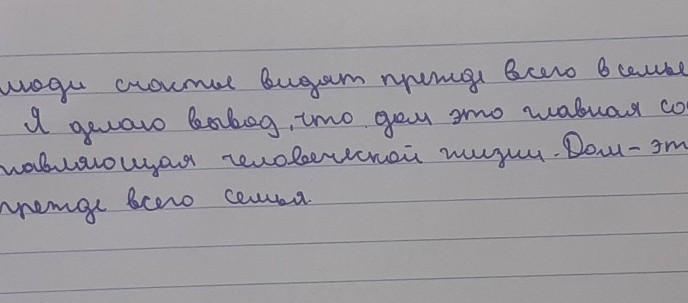 люди счастье видят прежде всего в семье
Я делаю вывод, что дом это главная со
тавляющая человеческой жизни. Дом - эт
прежде всего семья.